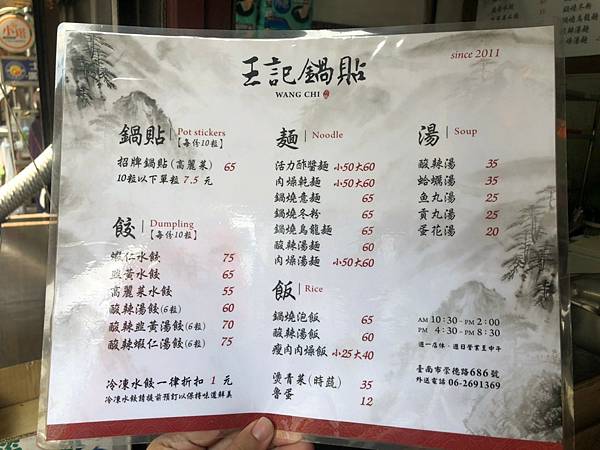 王記鍋貼
WANG CHI
since 2011
鍋貼 Pot stickers
【每份10粒】
招牌鍋貼(高麗菜) 65
10粒以下單粒 7.5 元
餃 Dumpling
【每份10粒】
蝦仁水餃 75
韭黃水餃 65
高麗菜水餃 55
酸辣湯餃(6粒) 60
酸辣韭黃湯餃(6粒) 70
酸辣蝦仁湯餃(6粒) 75
冷凍水餃一律折扣 1 元
冷凍水餃請提前預訂以保持味道鮮美
麵 Noodle
活力酢醬麵 小50大60
肉燥乾麵 小50大60
鍋燒意麵 65
鍋燒冬粉 65
鍋燒烏龍麵 65
酸辣湯麵 60
肉燥湯麵 小50大60
飯 Rice
鍋燒泡飯 65
酸辣湯飯 60
瘦肉肉燥飯 小25大40
燙青菜(時蔬) 35
魯蛋 12
湯 Soup
酸辣湯 35
蛤蠣湯 35
魚丸湯 25
貢丸湯 25
蛋花湯 20
AM 10:30 - PM 2:00
PM 4:30 - PM 8:30
週一店休‧週日營業至中午
臺南市崇德路686號
外送電話 06-2691369